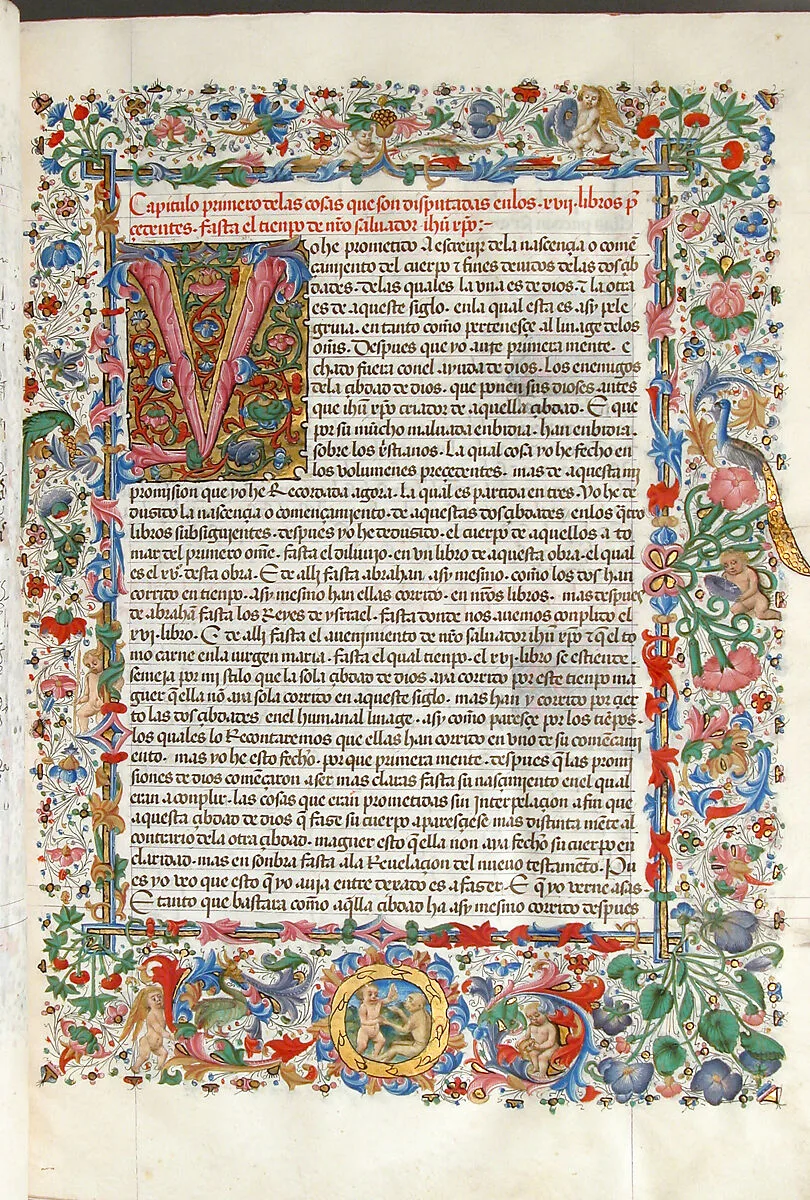 Capitulo primero delas cosas que son disputadas enlos .xvij. libros p̃
çedentes . fasta el tienpo de nr̃o saluador . ihũ xp̃o :-
Vo he prometido A escreuir dela nasçençia o comẽ
çamiento del cuerpo ⁊ fines deuidos delas dos çib
dades . delas quales la vna es de dios . ⁊ la otra
es de aqueste siglo . enla qual esta es . asy pele
grina . en tanto com̃o pertenesçe al linage delos
om̃s . Despues que yo ante primera mente . e
chado fuera conel . ayuda de dios . Los enemigos
dela çibdad de dios . que ponen sus dioses . antes
que ihũ xp̃o criador de aquella çibdad . E que
por su mũcho maluada enbidia . han enbidia .
sobre los xp̃stianos . La qual cosa yo he fecho en
los volumenes preçedentes . mas de aquesta mj
promision que yo he Recordada agora . la qual es partida en tres . yo he de
duzido la nasçençia o començamiento . de aquestas dos çibdades . enlos q̃tro
libros subsiguientes . despues yo he dedusido . el cuerpo de aquellos a to
mar del primero om̃e . fasta el diluuio . en vn libro de aquesta obra . el qual
es el xvº. desta obra . E de alli fasta abrahan . asy mesmo . com̃o los dos han
corrido en tienpo . asy mesmo han ellas corrido . en nr̃os libros . mas despues
de abrahã fasta los Reyes de ysrrael . fasta donde nos auemos conplido el
xvi . libro . E de alli fasta el auenimiento de nr̃o saluador ihũ xp̃o ⁊ q̃ el to
mo carne enla uirgen maria . fasta el qual tienpo . el xvij . libro se estiende .
semeja por mj stilo que la sola çibdad de dios aya corrido por este tienpo ma
guer q̃ ella nõ aya sola corrido en aqueste siglo . mas han y corrido por çier
to las dos çibdades enel humanal linage . asy com̃o paresçe por los tiẽpos .
los quales lo Recontaremos que ellas han corrido en vno de su comẽçami
ento . mas yo he esto fecho . por que primera mente . despues q̃ las promi
siones de dios comẽçaron a ser mas claras fasta su nasçimiento enel qual
eran a conplir . las cosas que eran prometidas sin jnterpelaçion afin que
aquesta çibdad de dios q̃ faze su cuerpo aparesçiese mas distinta mẽte al
contrario dela otra çibdad . maguer esto q̃ ella non aya fecho su cuerpo en
claridad . mas en sonbra fasta ala Reuelaçion del nueuo testamẽto . Pu
es yo veo que esto q̃ yo auia entre dexado es a faser . E q̃ yo verne asas .
E tanto que bastara com̃o aq̃lla çibdad ha asy mesmo corrido despues